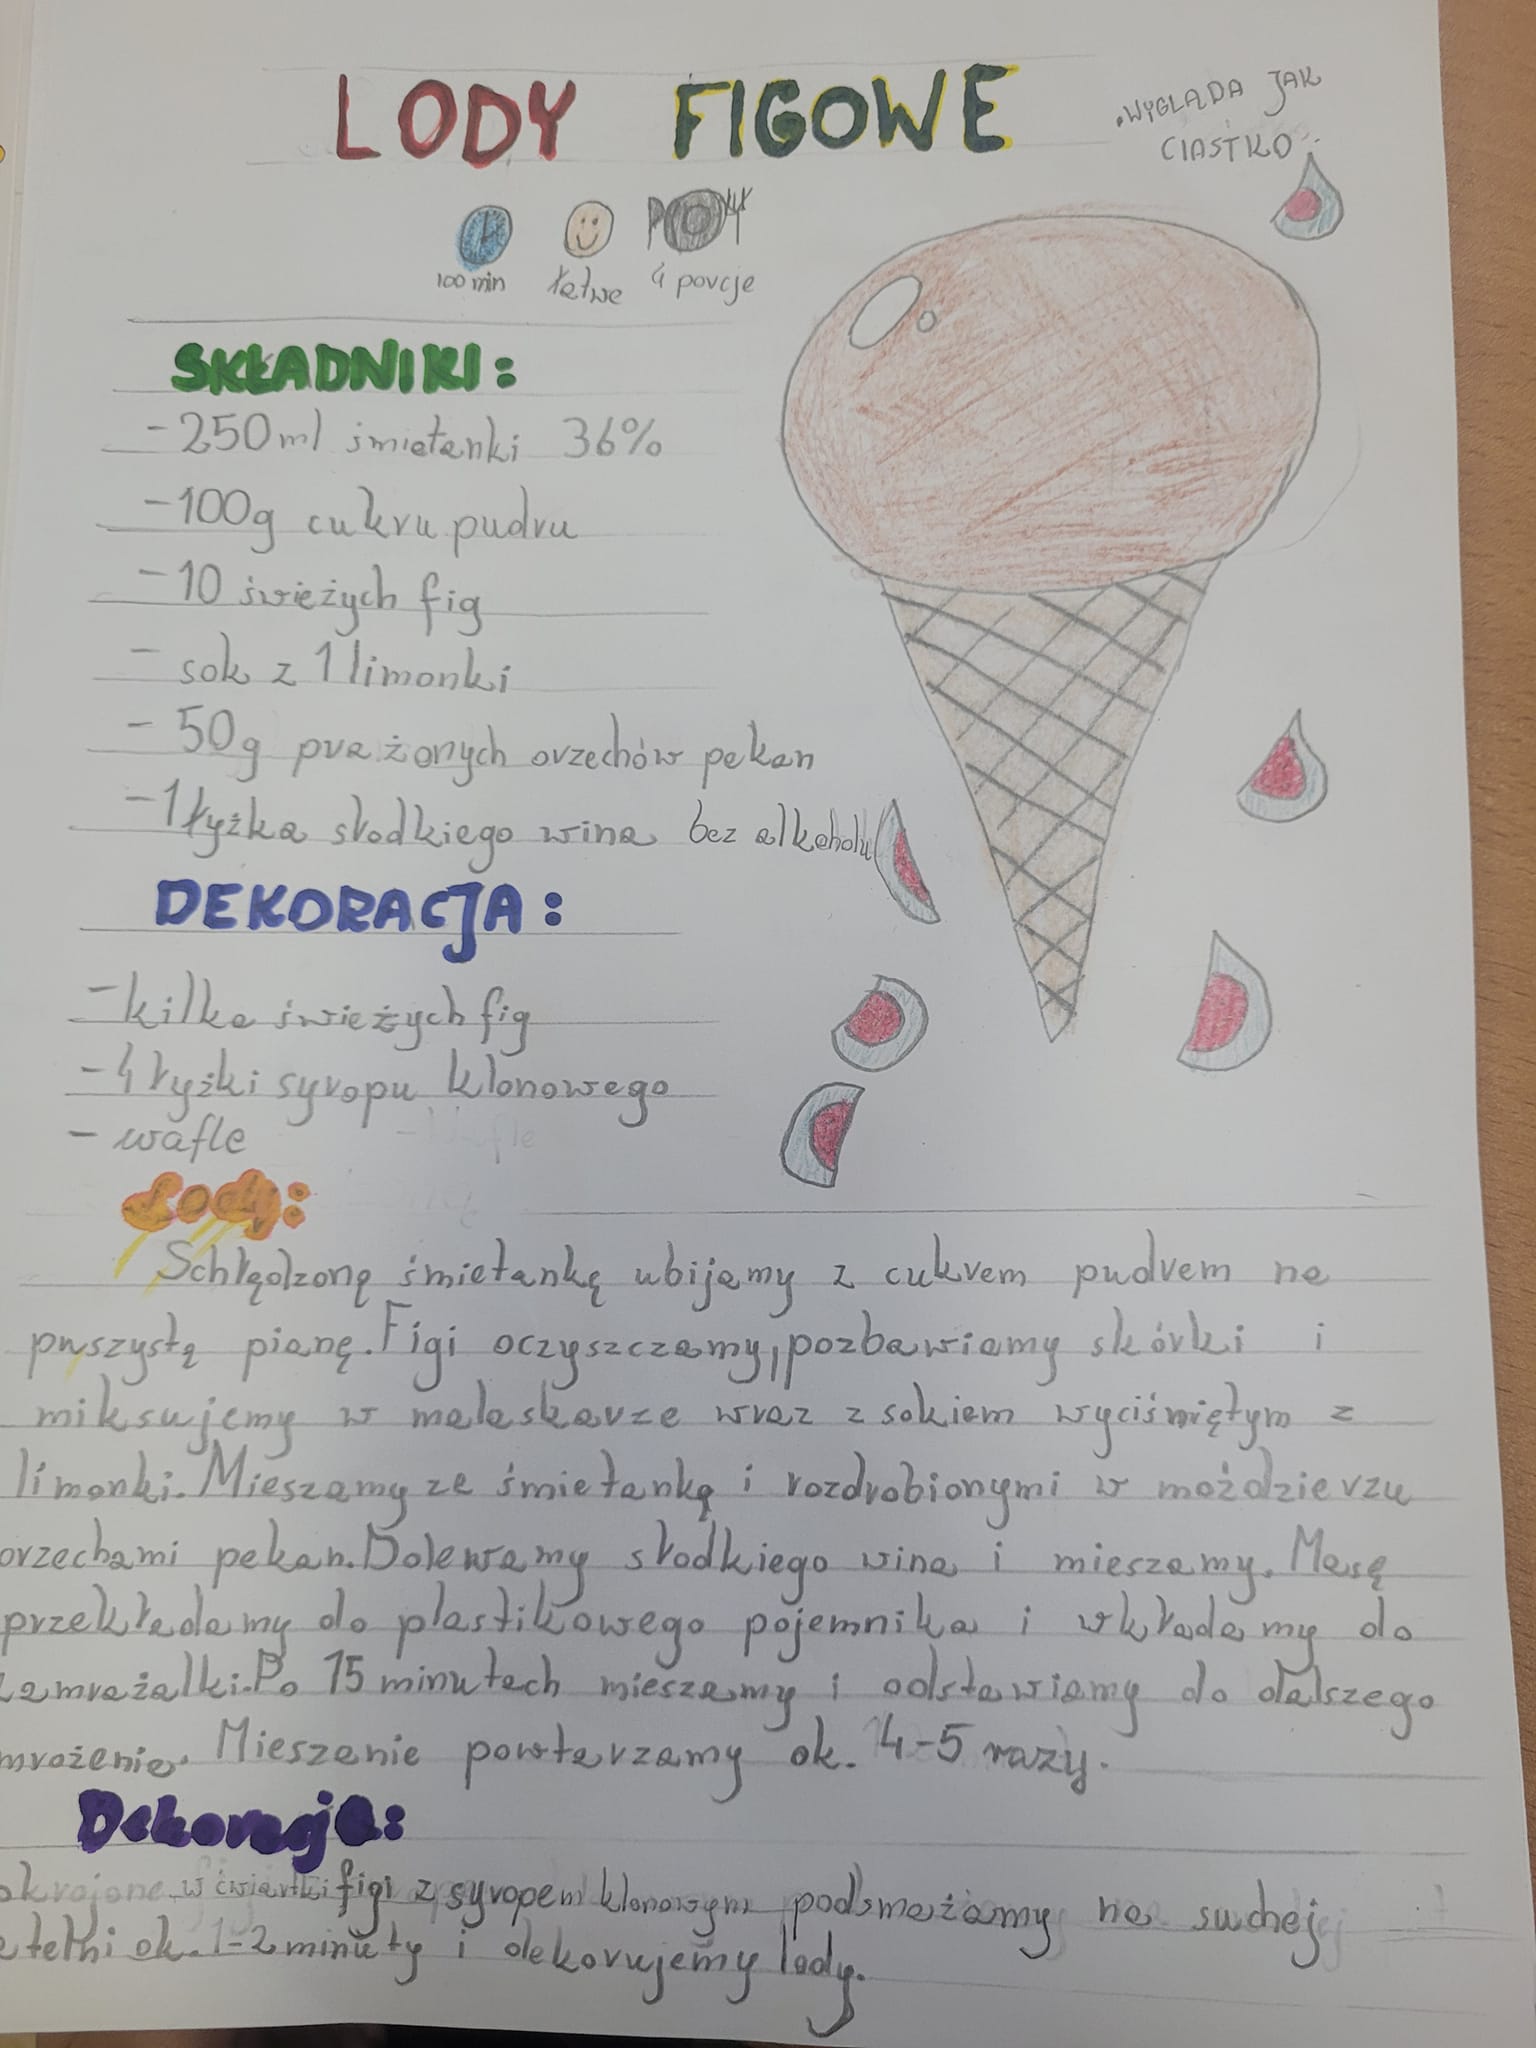 LODY FIGOWE
"WYGLĄDA JAK
CIASTKO"
100 min łatwe 4 porcje
SKŁADNIKI:
- 250ml śmietanki 36%
- 100g cukru pudru
- 10 świeżych fig
- sok z 1 limonki
- 50g prażonych orzechów pekan
- 1 łyżka słodkiego wina bez alkoholu
DEKORACJA:
- kilka świeżych fig
- 4 łyżki syropu klonowego
- wafle
Lody:
Schłodzoną śmietankę ubijamy z cukrem pudrem na
puszystą pianę. Figi oczyszczamy, pozbawiamy skórki i
miksujemy w malaskarze wraz z sokiem wyciśniętym z
limonki. Mieszamy ze śmietanką i rozdrobionymi w moździerzu
orzechami pekan. Dolewamy słodkiego wina i mieszamy. Masę
przekładamy do plastikowego pojemnika i wkładamy do
zamrażalki. Po 15 minutach mieszamy i odstawiamy do dalszego
mrożenia. Mieszanie powtarzamy ok. 4-5 razy.
Dekoracja:
okrojone w ćwiartki figi z syropem klonowym podsmażamy na suchej
atelni ok. 1-2 minuty i dekorujemy lody.